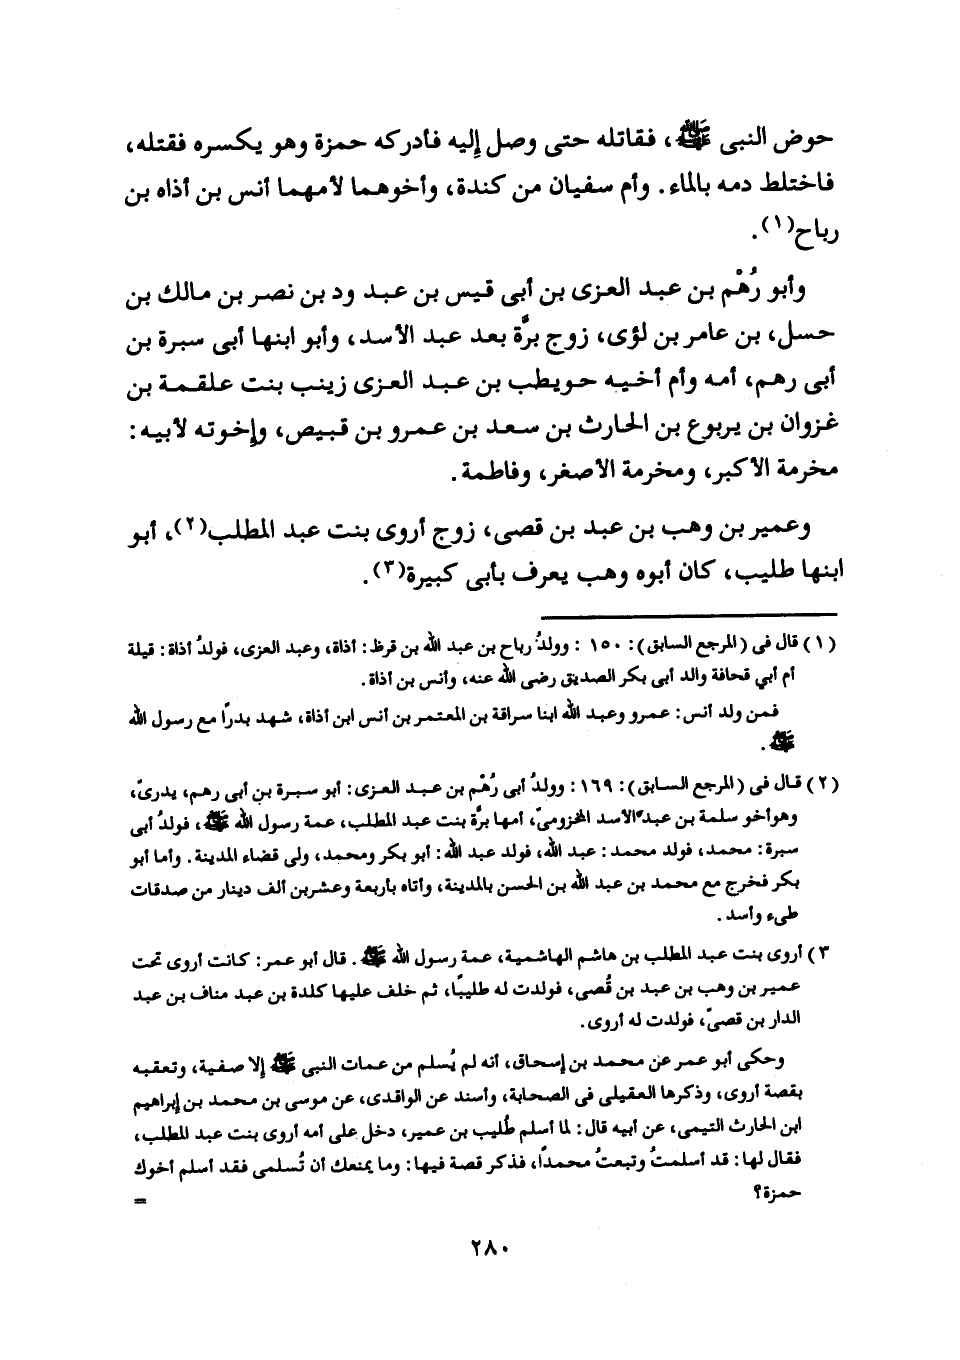 حوض النبى ﷺ، فقاتله حتى وصل إليه فأدركه حمزة وهو يكسره فقتله،
فاختلط دمه بالماء. وأم سفيان من كندة، وأخوهما لأمهما أنس بن أذاه بن
رباح(١).
وأبو رُهْم بن عبد العزى بن أبى قيس بن عبد ود بن نصر بن مالك بن
حسل، بن عامر بن لؤى، زوج برَّة بعد عبد الأسد، وأبو ابنها أبى سبرة بن
أبى رهم، أمه وأم أخيه حويطب بن عبد العزى زينب بنت علقمة بن
غزوان بن يربوع بن الحارث بن سعد بن عمرو بن قبيص، وإخوته لأبيه:
مخرمة الأكبر، ومخرمة الأصغر، وفاطمة.
وعمير بن وهب بن عبد بن قصى، زوج أروى بنت عبد المطلب(٢)، أبو
ابنها طليب، كان أبوه وهب يعرف بأبى كبيرة(٣).
(١) قال فى (المرجع السابق): ١٥٠ : وولدُ رباح بن عبد الله بن قرظ: أذاة، وعبد العزى، فولدُ أذاة: قيلة
أم أبي قحافة والد أبى بكر الصديق رضى الله عنه، وأنس بن أذاة.
فمن ولد أنس: عمرو وعبد الله ابنا سراقة بن المعتمر بن أنس ابن أذاة، شهد بدرًا مع رسول الله
ﷺ.
(٢) قال فى (المرجع السابق): ١٦٩ : وولدُ أبى رُهْم بن عبد العزى: أبو سبرة بن أبى رهم، بدرىّ،
وهوأخو سلمة بن عبد الأسد المخزومىّ، أمها برَّة بنت عبد المطلب، عمة رسول الله ﷺ، فولدُ أبى
سبرة: محمد، فولد محمد: عبد الله، فولد عبد الله: أبو بكر ومحمد، ولى قضاء المدينة. وأما أبو
بكر فخرج مع محمد بن عبد الله بن الحسن بالمدينة، وأتاه بأربعة وعشرين ألف دينار من صدقات
طىء وأسد.
٣) أروى بنت عبد المطلب بن هاشم الهاشمية، عمة رسول الله ﷺ. قال أبو عمر: كانت أروى تحت
عمير بن وهب بن عبد بن قُصى، فولدت له طليبًا، ثم خلف عليها كلدة بن عبد مناف بن عبد
الدار بن قصىّ، فولدت له أروى.
وحكى أبو عمر عن محمد بن إسحاق، أنه لم يُسلم من عمات النبى ﷺ إلا صفية، وتعقبه
بقصة أروى، وذكرها العقيلى فى الصحابة، وأسند عن الواقدى، عن موسى بن محمد بن إبراهيم
ابن الحارث التيمى، عن أبيه قال: لما أسلم طُليب بن عمير، دخل على أمه أروى بنت عبد المطلب،
فقال لها: قد أسلمتُ وتبعتُ محمدًا، فذكر قصة فيها: وما يمنعك أن تُسلمى فقد أسلم أخوك
حمزة؟ =
٢٨٠